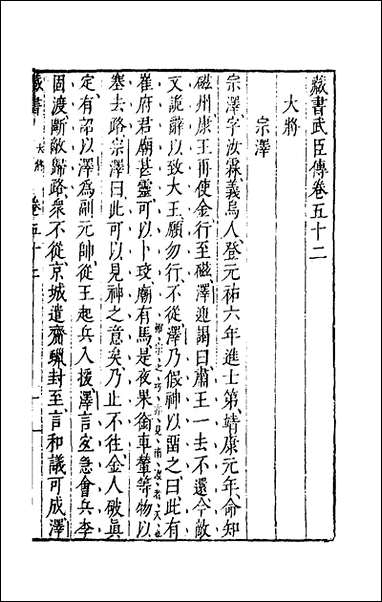 藏書武臣傳卷五十二
大將
宗澤
宗澤字汝霖義烏人登元祐六年進士第靖康元年命知
磁州康王再使金行至磁澤迎謁曰肅王一去不還今敵
又詭辭以致大王願勿行不從澤乃假神以留之曰此有
崔府君廟甚靈可以卜珓廟有馬是夜果銜車輦等物以
塞去路宗澤曰此可以見神之意矣乃止不往金人破真
定有詔以澤為副元帥從王起兵入援澤言宜急會兵李
固渡斷敵歸路衆不從京城遣齎蠟封至言和議可成澤
藏書 大將 卷五十二